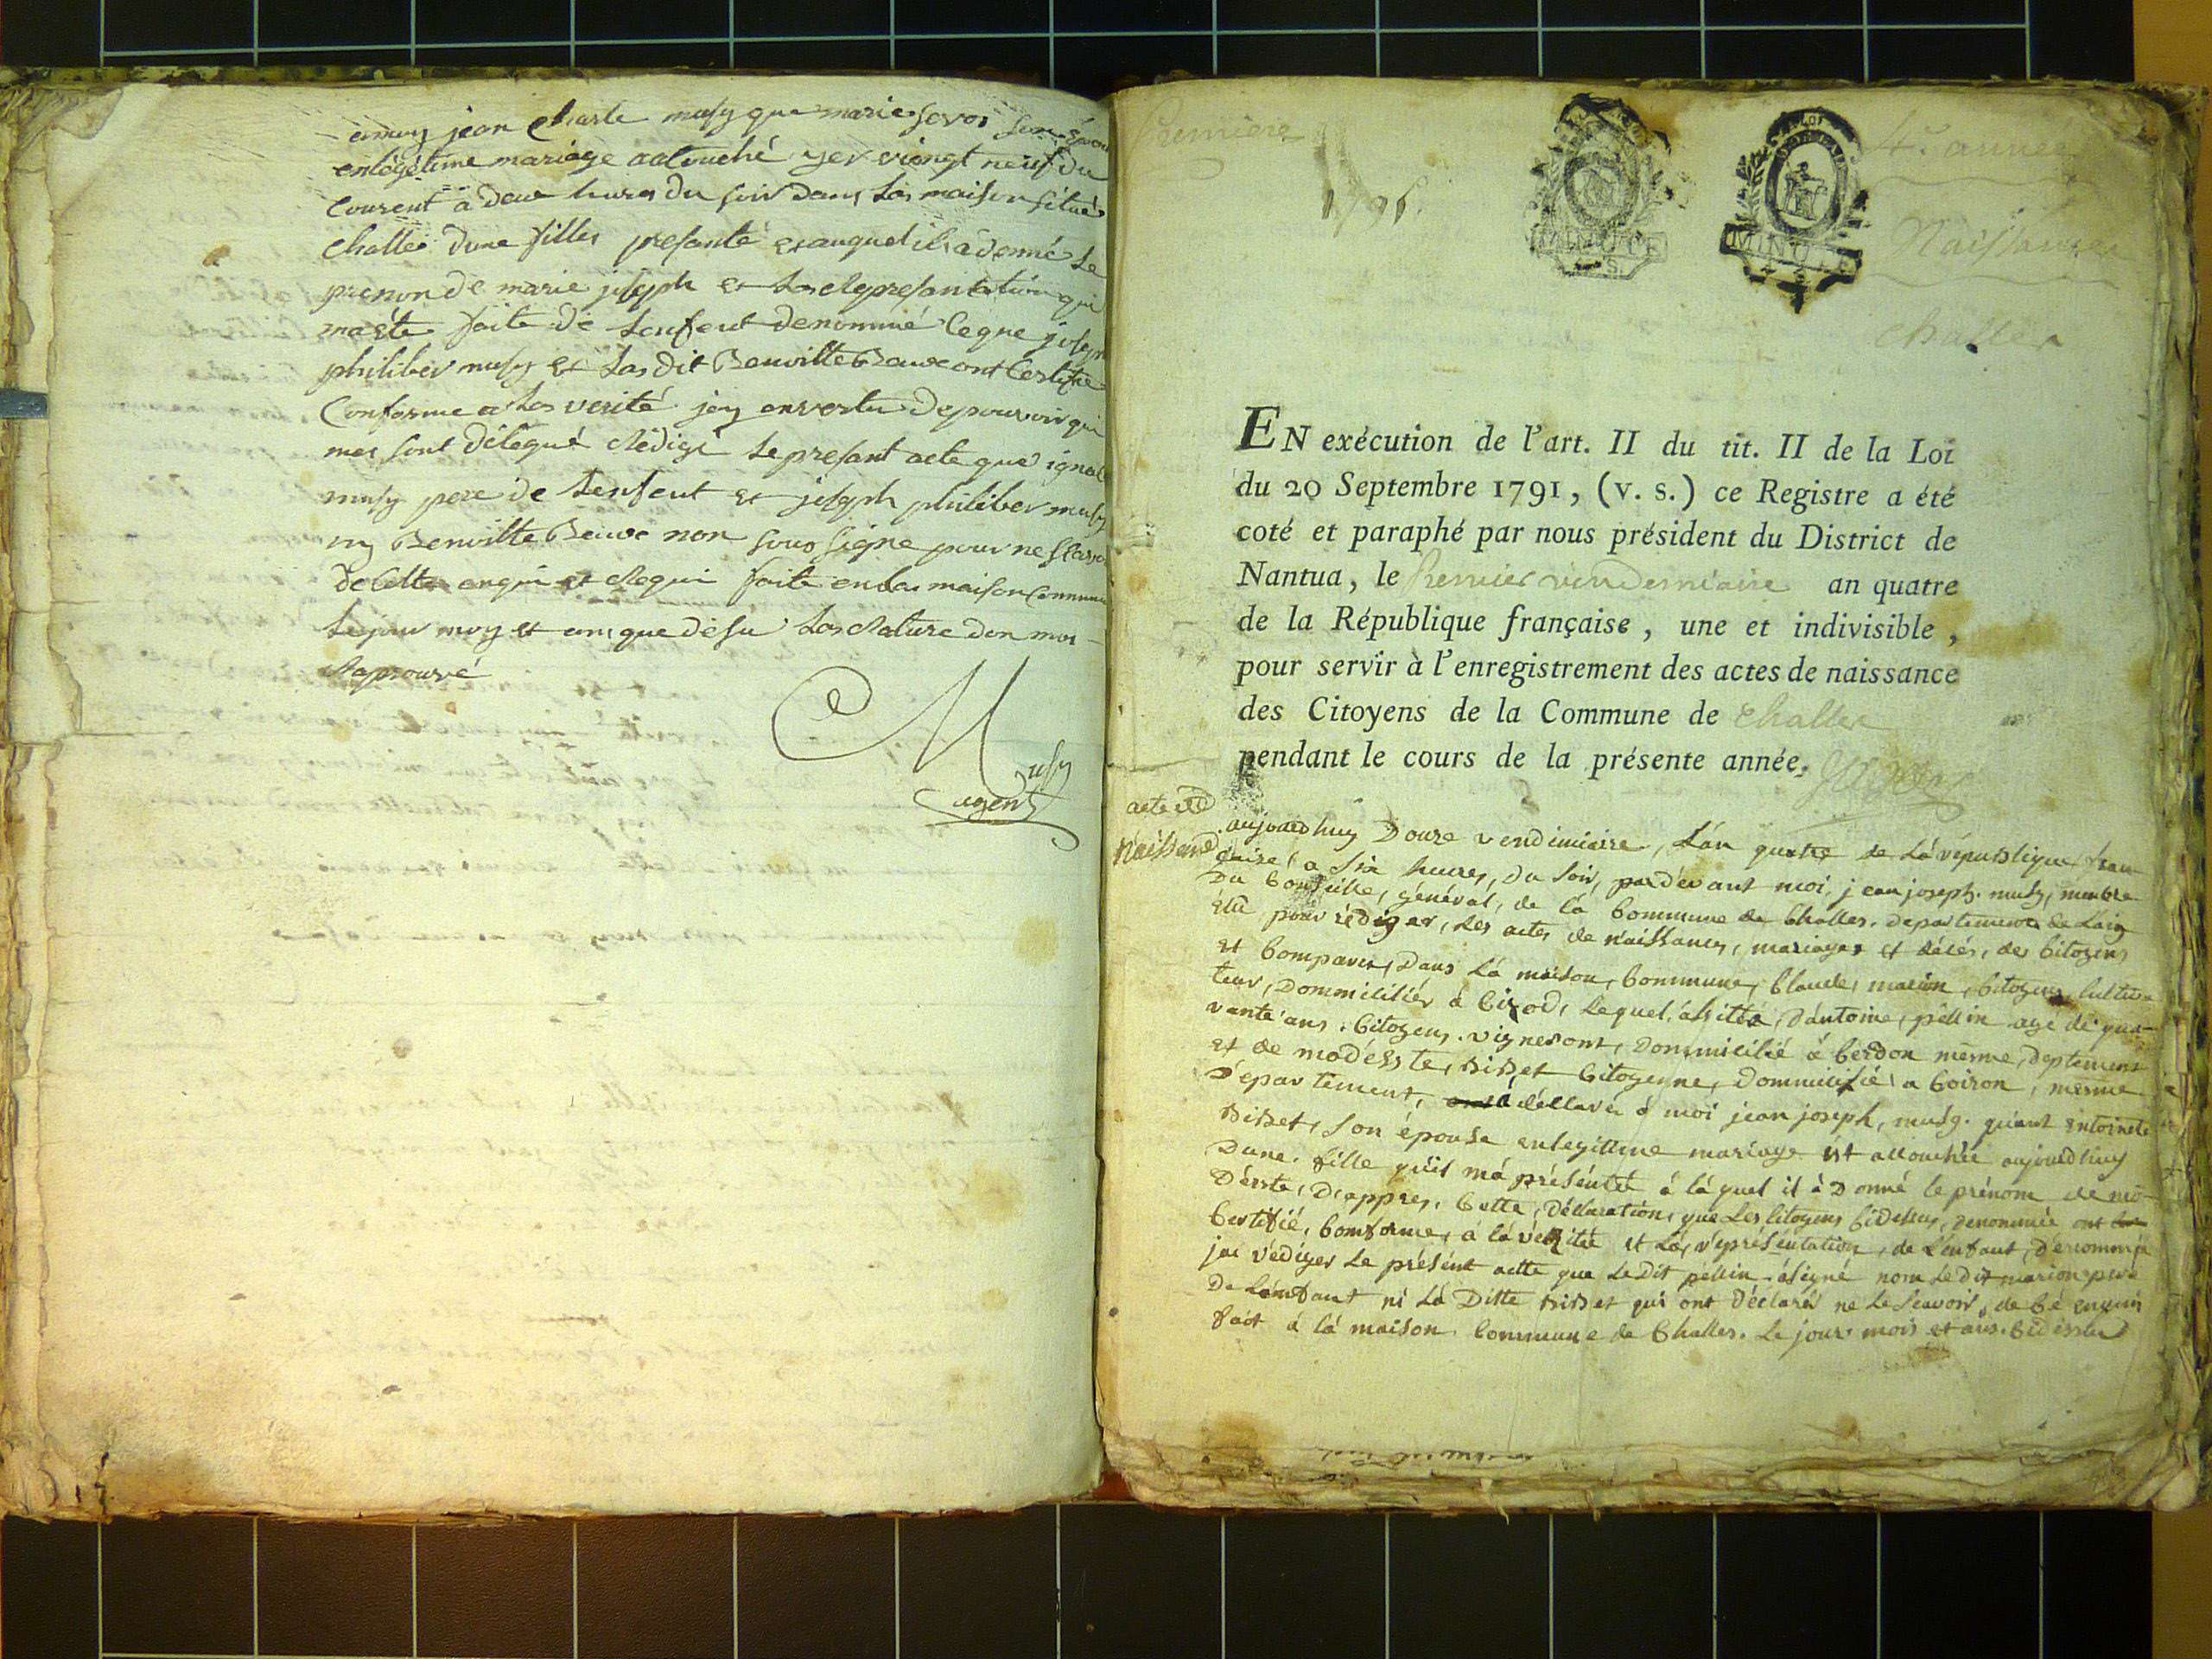 amoy jean Charle musy que marie
enlégétime mariage acouché yer viongt neuf du
Courent a deux hures du soir dans las maison situé
challe dune filles presanté et auquel il a donné Le
prenon de marie joseph et Las Represantation qui
maété faite de Lenfent denommé Ceque joseph
philiber musy et Las dit Benvitte Beuve ont Certifié
Conforme a Las verité jey envertu depouvoir qui
mes sont délégué Rédigé Le presant acte que
musy pere de Lenfent et joseph philiber musy
ny Benvitte Beuve non sous signe pour ne
de Cette enqui et Requi faite enlas maison Commune
Lejour moy et anique desu Las Rature don mos
Raprouvé
Musy
agent
Premiere
179
4e. année
Naissances
challes
MINUTE
MINUTE
EN exécution de l'art. II du tit. II de la Loi
du 20 Septembre 1791, (v. s.) ce Registre a été
coté et paraphé par nous président du District de
Nantua, le Premier vindemiaire an quatre
de la République française, une et indivisible,
pour servir à l'enregistrement des actes de naissance
des Citoyens de la Commune de Challes
pendant le cours de la présente année.
acte de
Naissance
aujourdhuy Douze vendimiaire, L'an quatre de Lá république fran
çaise, a six heures, du soir, pardévant moi, jean joseph. musy, membre
Du Conseille, général, de lá Commune de Challes. departement de Laig
élû pour rédiger, les actes de naissances, mariages et décés, des Citoyens
et Comparu, Dans Lá maison, Commune, Claude, marion, Citoyens, Cultiva
teur, Dommicilièr á Cizod, Lequel, assitté, d'antoine, pèllin agé de qua-
rante ans, Citoyens. vigneront, Dommicilié á Cerdon même, deptement
et de modèste, Bibet Citoyenne, Dommicilié, a Coiron, même
D'epartement, á déllarér á moi jean joseph, musy. quant entoinete
Bibet, son épouse enlegittime mariage est accouchée aujourdhuy
Dune. fille qu'il má présénteé á láquel il á Donné le prénom de mo-
Déste, D'appres, Cette, déclaration, que Les Citoyens Cidessus, Denommée ont
Certifié, Comforme, á lá véritée et Lá, représéntation, de L'enfant, dénommée
jai rédiger Le présént actte que Le Dit pèllin. á signé nom Le dit marion peré
De Lénfant ni Lá Ditte Bibet qui ont Déclarér ne Le Scavoir, de Cé enquis
fait á lá maison Commune de Challes. Le jour. mois et ans. Cidessu